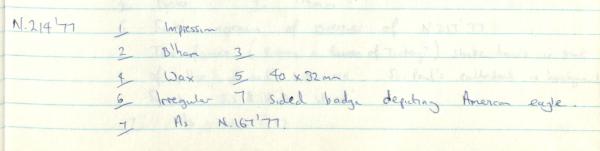 N.214'77 1 Impression
2 B'ham 3
4 Wax 5 40 x 32mm
6 Irregular 7 sided badge depicting American eagle.
7 As N.167'77.